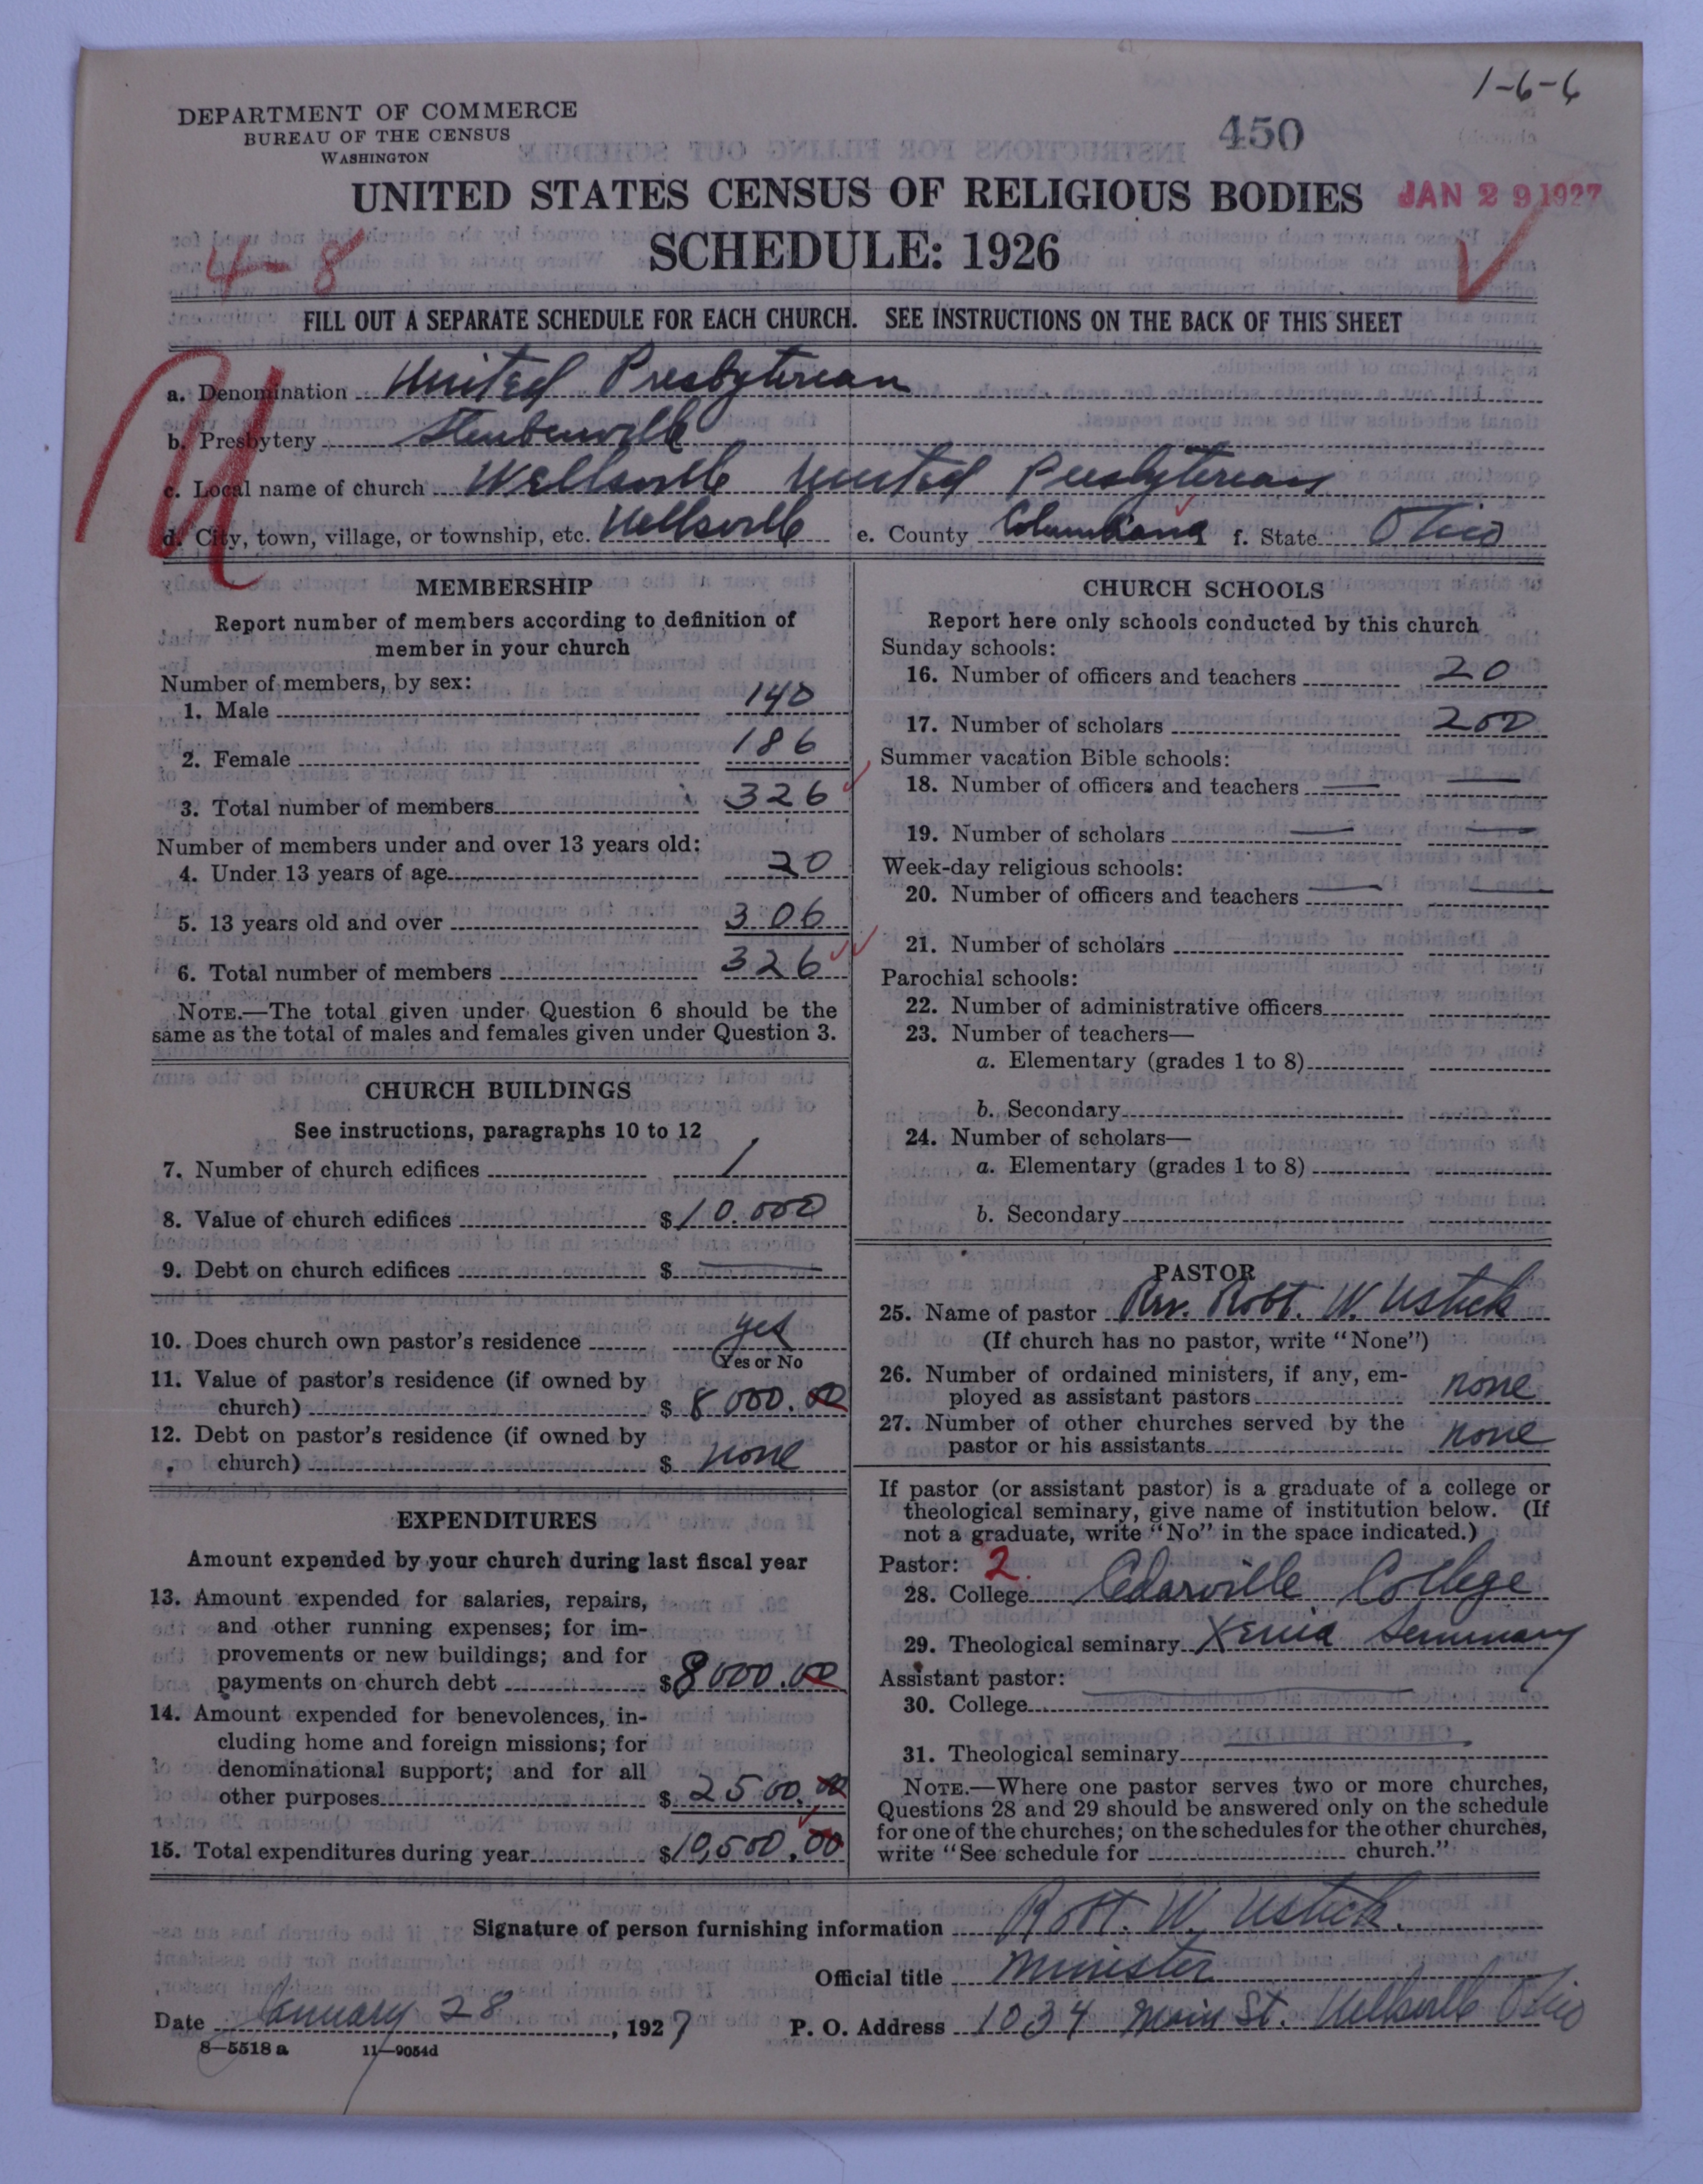 1-6-6
DEPARTMENT OF COMMERCE
BUREAU OF THE CENSUS
WASHINGTON
450
UNITED STATES CENSUS OF RELIGIOUS BODIES
JAN 29 1927
4-8
SCHEDULE: 1926
FILL OUT A SEPARATE SCHEDULE FOR EACH CHURCH. SEE INSTRUCTIONS ON THE BACK OF THIS SHEET
a. Denomination United Presbyterian
b. Presbytery Steubenville
c. Local name of church Wellsville United Presbyterian
d. City, town, village, or township, etc. Wellsville e. County Columbiana f. State Ohio
MEMBERSHIP
Report number of members according to definition of
member in your church
Number of members, by sex:
1. Male 140
2. Female 186
3. Total number of members 326
Number of members under and over 13 years old:
4. Under 13 years of age 20
5. 13 years old and over 306
6. Total number of members 326
NOTE.—The total given under Question 6 should be the
same as the total of males and females given under Question 3.
CHURCH BUILDINGS
See instructions, paragraphs 10 to 12
7. Number of church edifices 1
8. Value of church edifices $10.000
9. Debt on church edifices $ —
10. Does church own pastor's residence yes
Yes or No
11. Value of pastor's residence (if owned by
church) $ 8000.00
12. Debt on pastor's residence (if owned by
church) $ none
EXPENDITURES
Amount expended by your church during last fiscal year
13. Amount expended for salaries, repairs,
and other running expenses; for im-
provements or new buildings; and for
payments on church debt $8000.00
14. Amount expended for benevolences, in-
cluding home and foreign missions; for
denominational support; and for all
other purposes $ 2500.00
15. Total expenditures during year $10,500.00
CHURCH SCHOOLS
Report here only schools conducted by this church
Sunday schools:
16. Number of officers and teachers 20
17. Number of scholars 200
Summer vacation Bible schools:
18. Number of officers and teachers — —
19. Number of scholars — —
Week-day religious schools:
20. Number of officers and teachers — —
21. Number of scholars
Parochial schools:
22. Number of administrative officers
23. Number of teachers—
a. Elementary (grades 1 to 8)
b. Secondary
24. Number of scholars—
a. Elementary (grades 1 to 8)
b. Secondary
PASTOR
25. Name of pastor Rev. Robt. W. Ustick
(If church has no pastor, write "None")
26. Number of ordained ministers, if any, em-
ployed as assistant pastors none
27. Number of other churches served by the
pastor or his assistants none
If pastor (or assistant pastor) is a graduate of a college or
theological seminary, give name of institution below. (If
not a graduate, write "No" in the space indicated.)
Pastor: 2.
28. College Cedarville College
29. Theological seminary Xenia Seminary
Assistant pastor:
30. College
31. Theological seminary
NOTE.—Where one pastor serves two or more churches,
Questions 28 and 29 should be answered only on the schedule
for one of the churches; on the schedules for the other churches,
write "See schedule for church."
Signature of person furnishing information Robt. W. Ustick.
Official title Minister
Date January 28, 1927 P. O. Address 1034 Main St. Wellsville Ohio
8—5518 a 11—9054d